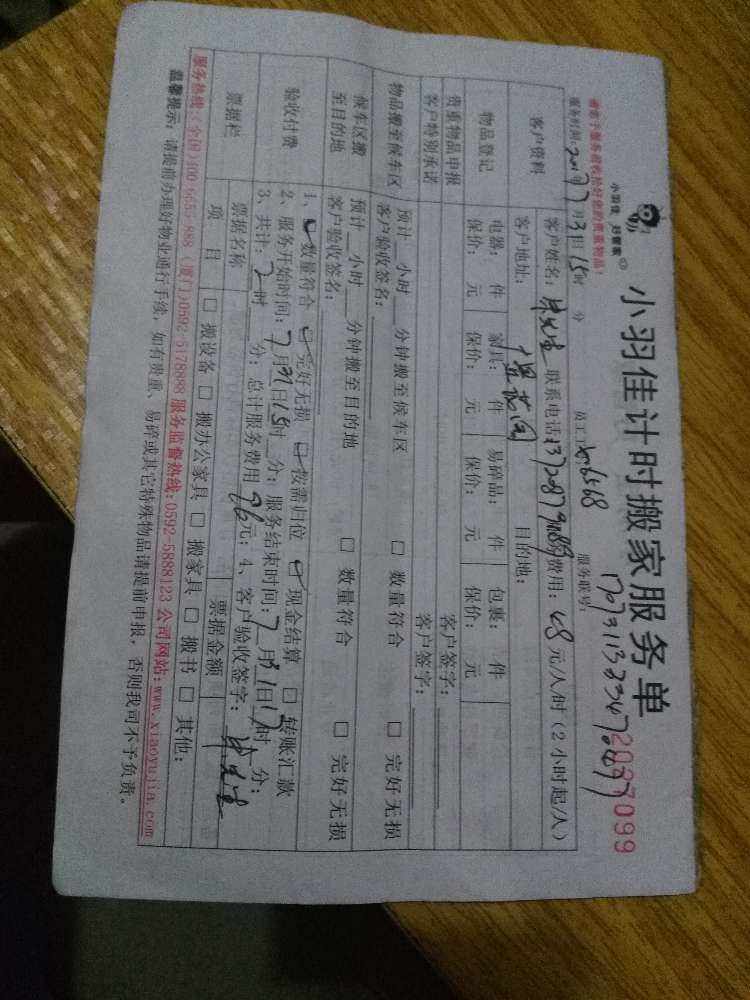 小羽佳 好管家
小羽佳计时搬家服务单
2037099
请您于服务前收拾好您的贵重物品!
服务时间: 2017年7月31日15时 分 员工工号: 6568 服务联号:
客户资料
客户姓名: 先生 联系电话: 费用: 48元/人/时(2小时起/人)
客户地址: 目的地:
物品登记
电器: 件 家具: 件 易碎品: 件 包裹: 件
保价: 元 保价: 元 保价: 元 保价: 元
贵重物品申报 客户签字:
客户特别承诺 客户签字:
物品搬至候车区
预计__小时__分钟搬至候车区 □ 数量符合 □ 完好无损
客户验收签名:
候车区搬至目的地
预计__小时__分钟搬至目的地 □ 数量符合 □ 完好无损
客户验收签名:
验收付费
1、☑ 数量符合 ☑ 完好无损 ☑ 按需归位 ☑ 现金结算 □ 转账汇款
2、服务开始时间: 7月31日15时__分; 服务结束时间: 7月31日17时__分;
3、共计: 2时__分; 总计服务费用96元; 4、客户验收签字: 先生
票据栏
票据名称 票据金额
项 目 □ 搬设备 □ 搬办公家具 □ 搬家具 □ 搬书 □ 其他:
服务热线:(全国)400-6655-888 (厦门)0592-5178888 服务监督热线:0592-5888123 公司网站:www.xiaoyujia.com
温馨提示: 请提前办理好物业通行手续, 如有贵重、易碎或其它特殊物品请提前申报, 否则我司不予负责。